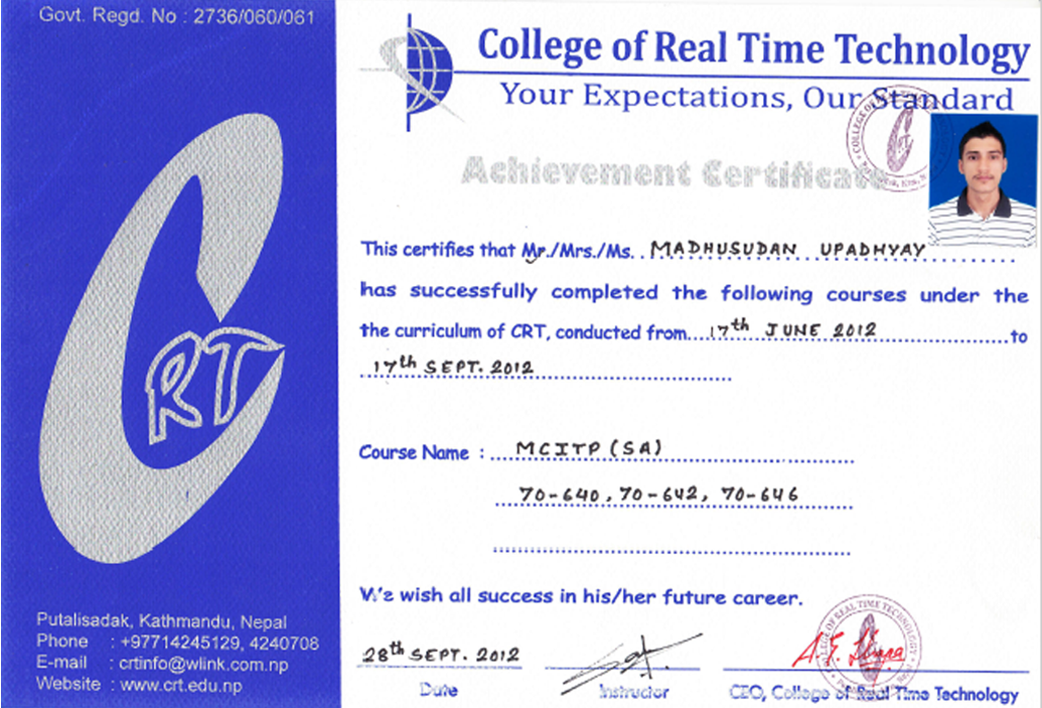 Govt. Regd. No : 2736/060/061
CRT
Putalisadak, Kathmandu, Nepal
Phone : +97714245129, 4240708
E-mail : crtinfo@wlink.com.np
Website : www.crt.edu.np
College of Real Time Technology
Your Expectations, Our Standard
Achievement Certificate
This certifies that Mr./Mrs./Ms. MADHUSUDAN UPADHYAY
has successfully completed the following courses under the
the curriculum of CRT, conducted from 17th JUNE 2012 to
17th SEPT. 2012
Course Name : MCITP (SA)
70-640, 70-642, 70-646
We wish all success in his/her future career.
28th SEPT. 2012
Date
Instructor
CEO, College of Real Time Technology
COLLEGE OF REAL TIME TECHNOLOGY